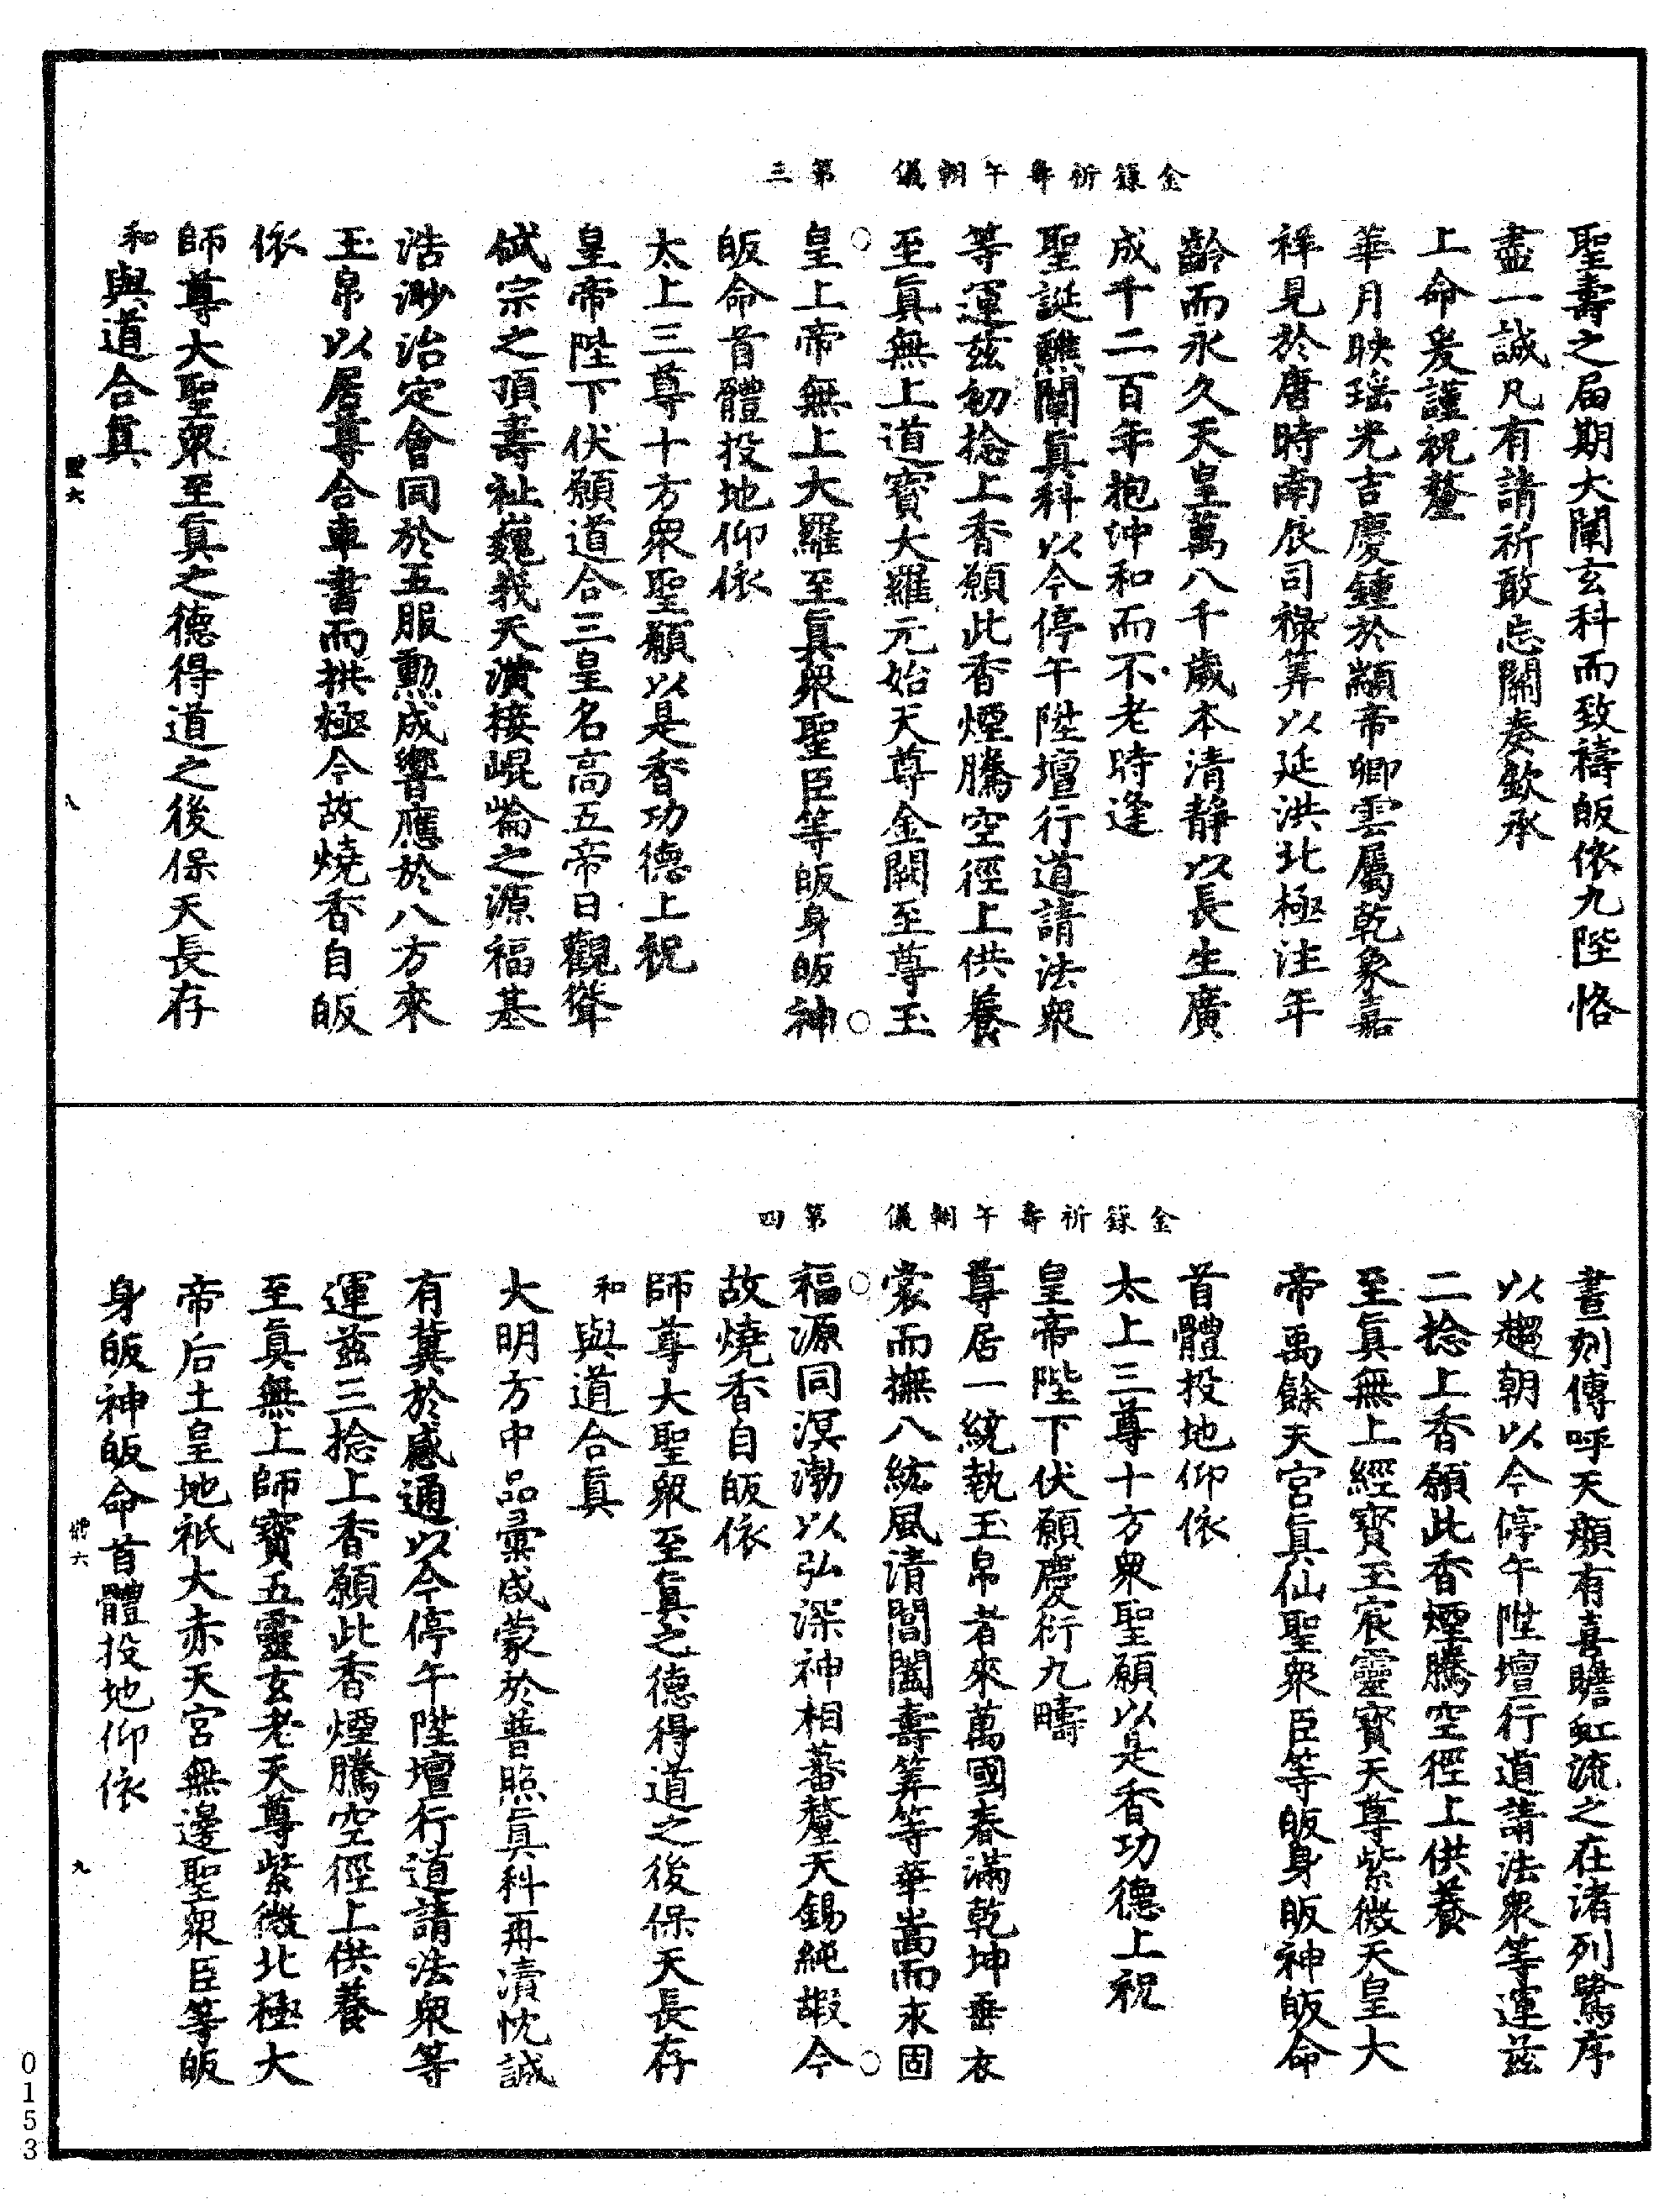 金籙祈壽午朝儀　第三
聖壽之届期大闡玄科而致禱皈依九陛恪
盡一誠凡有請祈敢忘關奏欽承
上命爰謹祝釐
華月映瑶光吉慶鍾於顓帝卿雲屬乾象嘉
祥見於唐時南辰司祿筭以延洪北極注年
齡而永久天皇萬八千歲本清靜以長生廣
成千二百年抱沖和而不老時逢
聖誕醮闡眞科以今停午陞壇行道請法衆
等運茲初捻上香願此香煙騰空徑上供養
至眞無上道寳大羅元始天尊金闕至尊玉
皇上帝無上大羅至眞衆聖臣等皈身皈神
皈命首體投地仰依
太上三尊十方衆聖願以是香功德上祝
皇帝陛下伏願道合三皇名高五帝日觀聳
岱宗之頂壽祉巍峩天潢接崐崙之源福基
浩渺治定會同於五服勲成響應於八方來
玉帛以居尊合車書而拱極今故燒香自皈
依
師尊大聖衆至眞之德得道之後保天長存
和與道合眞
壁六
八
金籙祈壽午朝儀　第四
晝刻傳呼天顏有喜瞻虹流之在渚列鷺序
以趨朝以今停午陞壇行道請法衆等運茲
二捻上香願此香煙騰空徑上供養
至眞無上經寳玉宸靈寳天尊紫微天皇大
帝禹餘天宮眞仙聖衆臣等皈身皈神皈命
首體投地仰依
太上三尊十方衆聖願以是香功德上祝
皇帝陛下伏願慶衍九疇
尊居一統執玉帛者來萬國春滿乾坤垂衣
裳而撫八紘風清閶闔壽筭等華嵩而永固
福源同溟渤以弘深神相蕃釐天錫純嘏今
故燒香自皈依
師尊大聖衆至眞之德得道之後保天長存
和與道合眞
大明方中品彙咸蒙於普照眞科再瀆忱誠
有冀於感通以今停午陞壇行道請法衆等
運茲三捻上香願此香煙騰空徑上供養
至眞無上師寳五靈玄老天尊紫微北極大
帝后土皇地祇大赤天宮無邊聖衆臣等皈
身皈神皈命首體投地仰依
六
九
0153